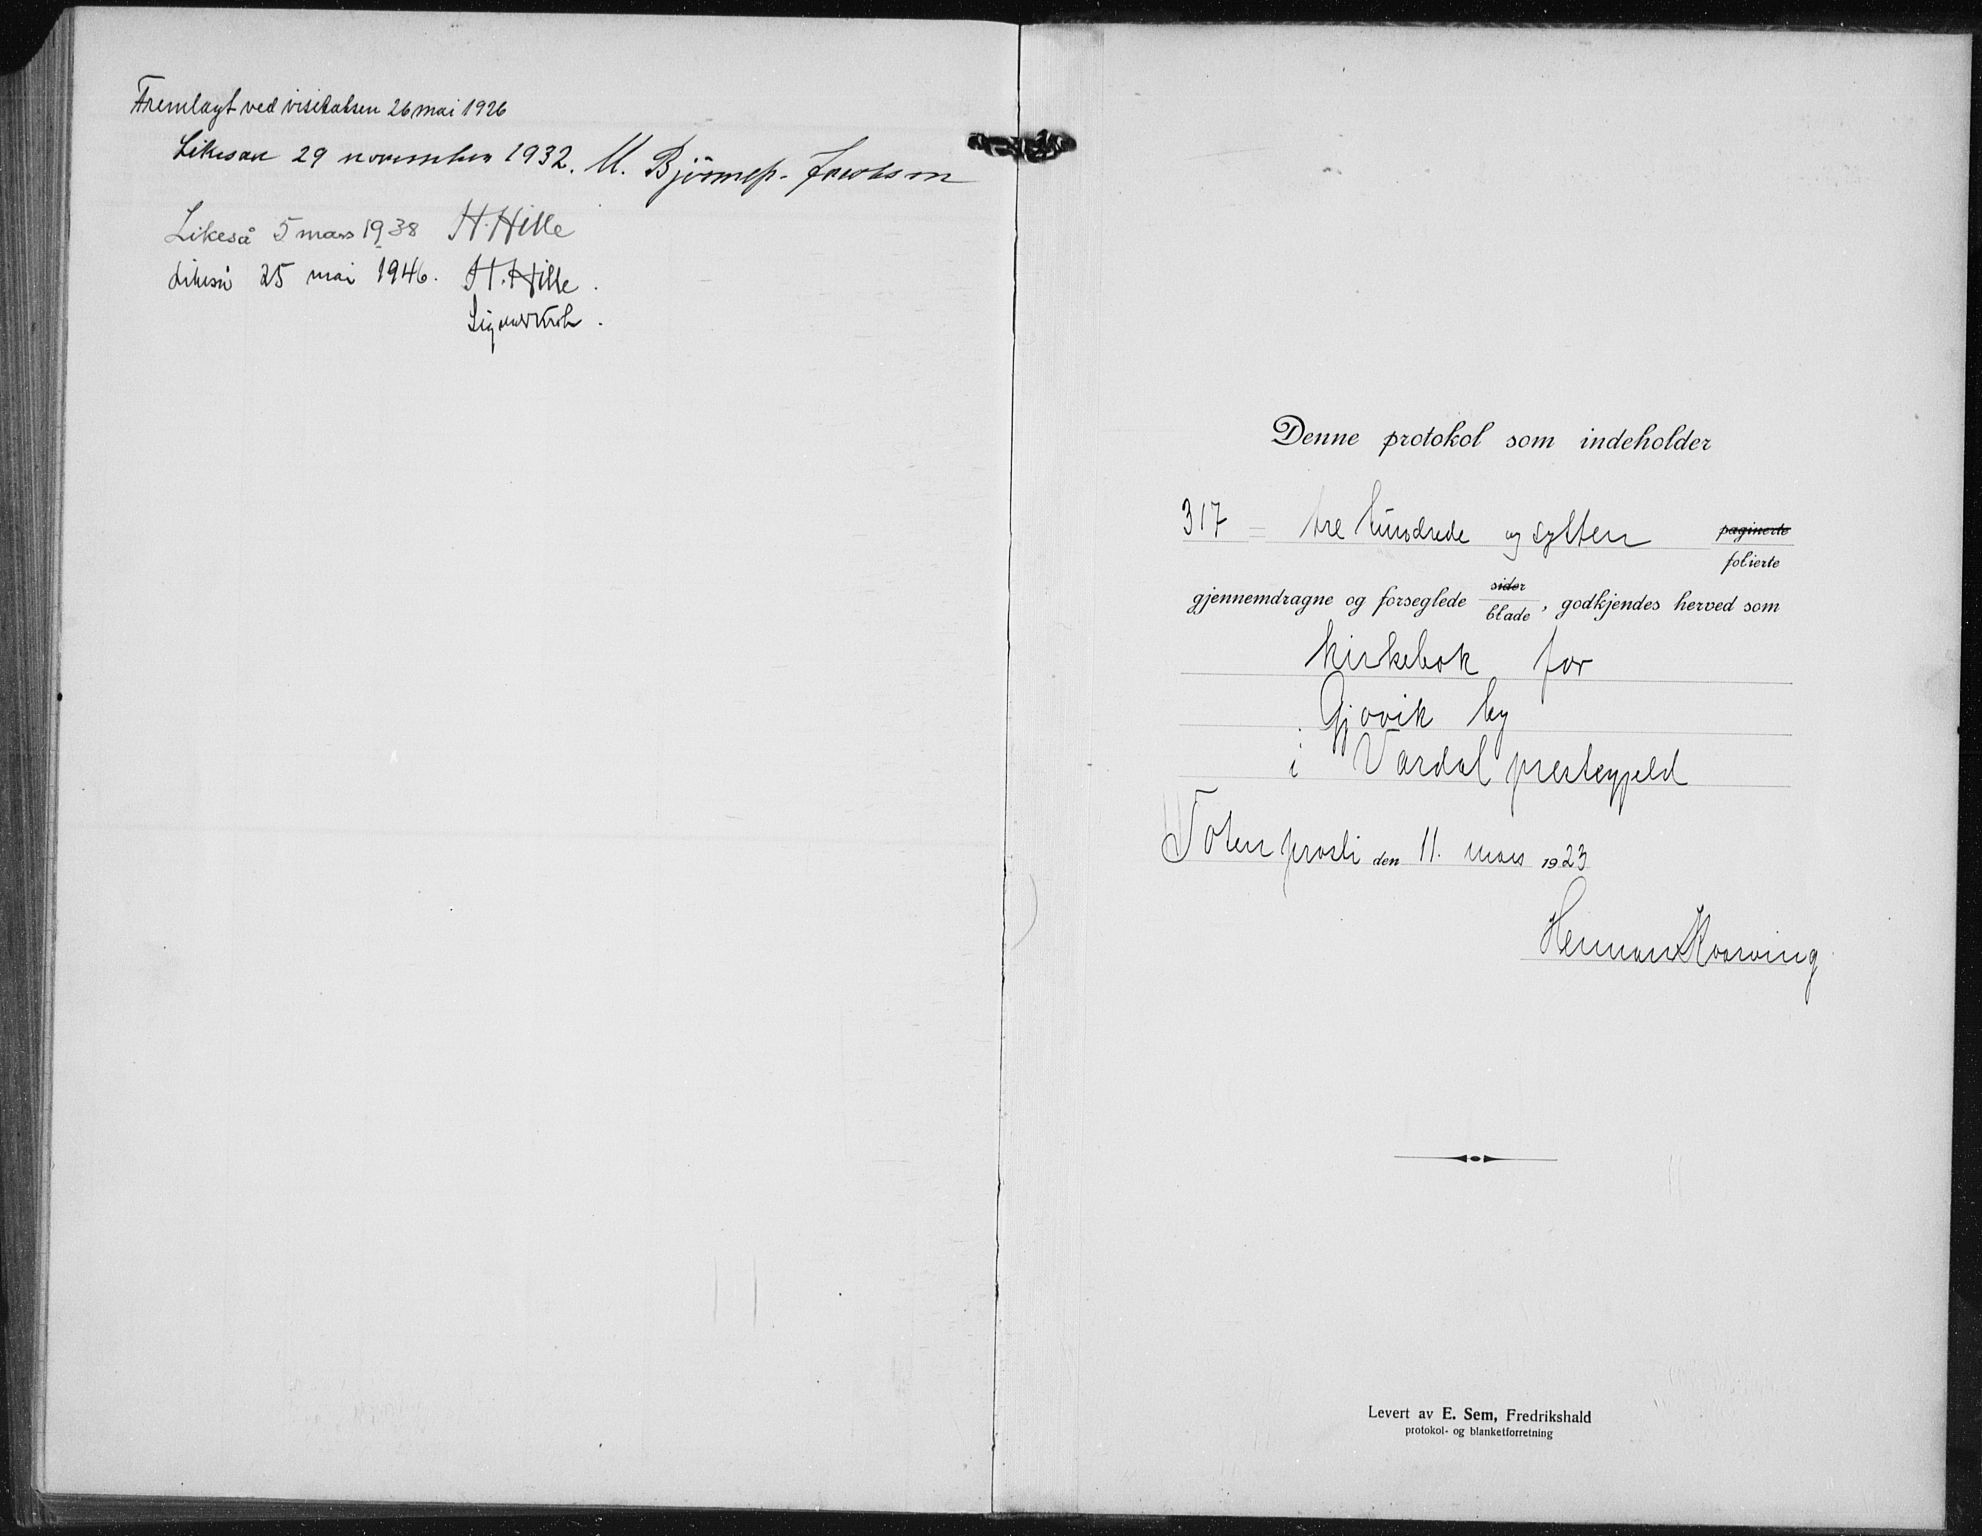 Fremlagt ved visitatsen 26 mai 1926
Likesaa 29 november 1932. M. Bjønnes-Jacobsen
Likeså 5 mars 1938 H. Hille
Likeså 25 mai 1946. H. Hille.
Denne protokol som indeholder
317 = tre hundrede og sytten paginerte
folierte
gjennemdragne og forseglede sider
blade, godkjendes herved som
kirkebok for
Gjøvik by
i Vardal prestegjeld
Toten prosti den 11. mars 1923
Herman Kvarving
Levert av E. Sem, Fredrikshald
protokol- og blanketforretning